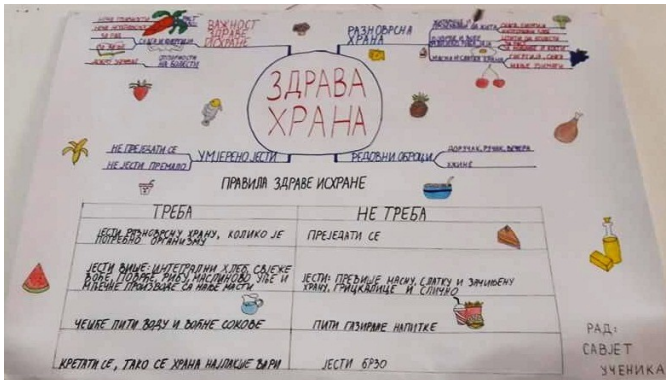 ВАЖНОСТ
ЗДРАВЕ
ИСХРАНЕ
РАСТ
СНАГА И ЕНЕРГИЈА
ДОБРО ЗДРАВЉЕ
ОТПОРНОСТИ
НА БОЛЕСТИ
РАЗНОВРСНА
ХРАНА
ЗДРАВА
ХРАНА
НЕ ПРЕЈЕДАТИ СЕ
НЕ ЈЕСТИ ПРЕМАЛО
УМЈЕРЕНО ЈЕСТИ
РЕДОВНИ ОБРОЦИ
ДОРУЧАК, РУЧАК, ВЕЧЕРА
УЖИНЕ
ПРАВИЛА ЗДРАВЕ ИСХРАНЕ
ТРЕБА
НЕ ТРЕБА
ЈЕСТИ РАЗНОВРСНУ ХРАНУ, КОЛИКО ЈЕ
ПОТРЕБНО ОРГАНИЗМУ
ПРЕЈЕДАТИ СЕ
ЈЕСТИ ВИШЕ: ИНТЕГРАЛНИ ХЛЕБ, СВЈЕЖЕ
ВОЋЕ, ПОВРЋЕ, РИБУ, МАСЛИНОВО УЉЕ И
МЛЕЧНЕ ПРОИЗВОДЕ СА МАЊЕ МАСТИ
ЈЕСТИ: ПРЕВИШЕ МАСНУ, СЛАТКУ И ЗАЧИЊЕНУ
ХРАНУ, ГРИЦКАЛИЦЕ И СЛИЧНО
ЧЕШЋЕ ПИТИ ВОДУ И ВОЋНЕ СОКОВЕ
ПИТИ ГАЗИРАНЕ НАПИТКЕ
КРЕТАТИ СЕ, ТАКО СЕ ХРАНА НАЈЛАКШЕ ВАРИ
ЈЕСТИ БРЗО
РАД:
САВЈЕТ
УЧЕНИКА